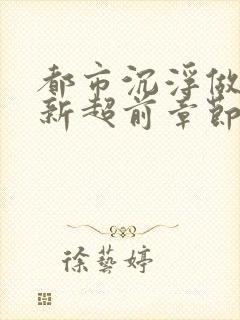 都市沉浮做
新超前章節
徐藝婷